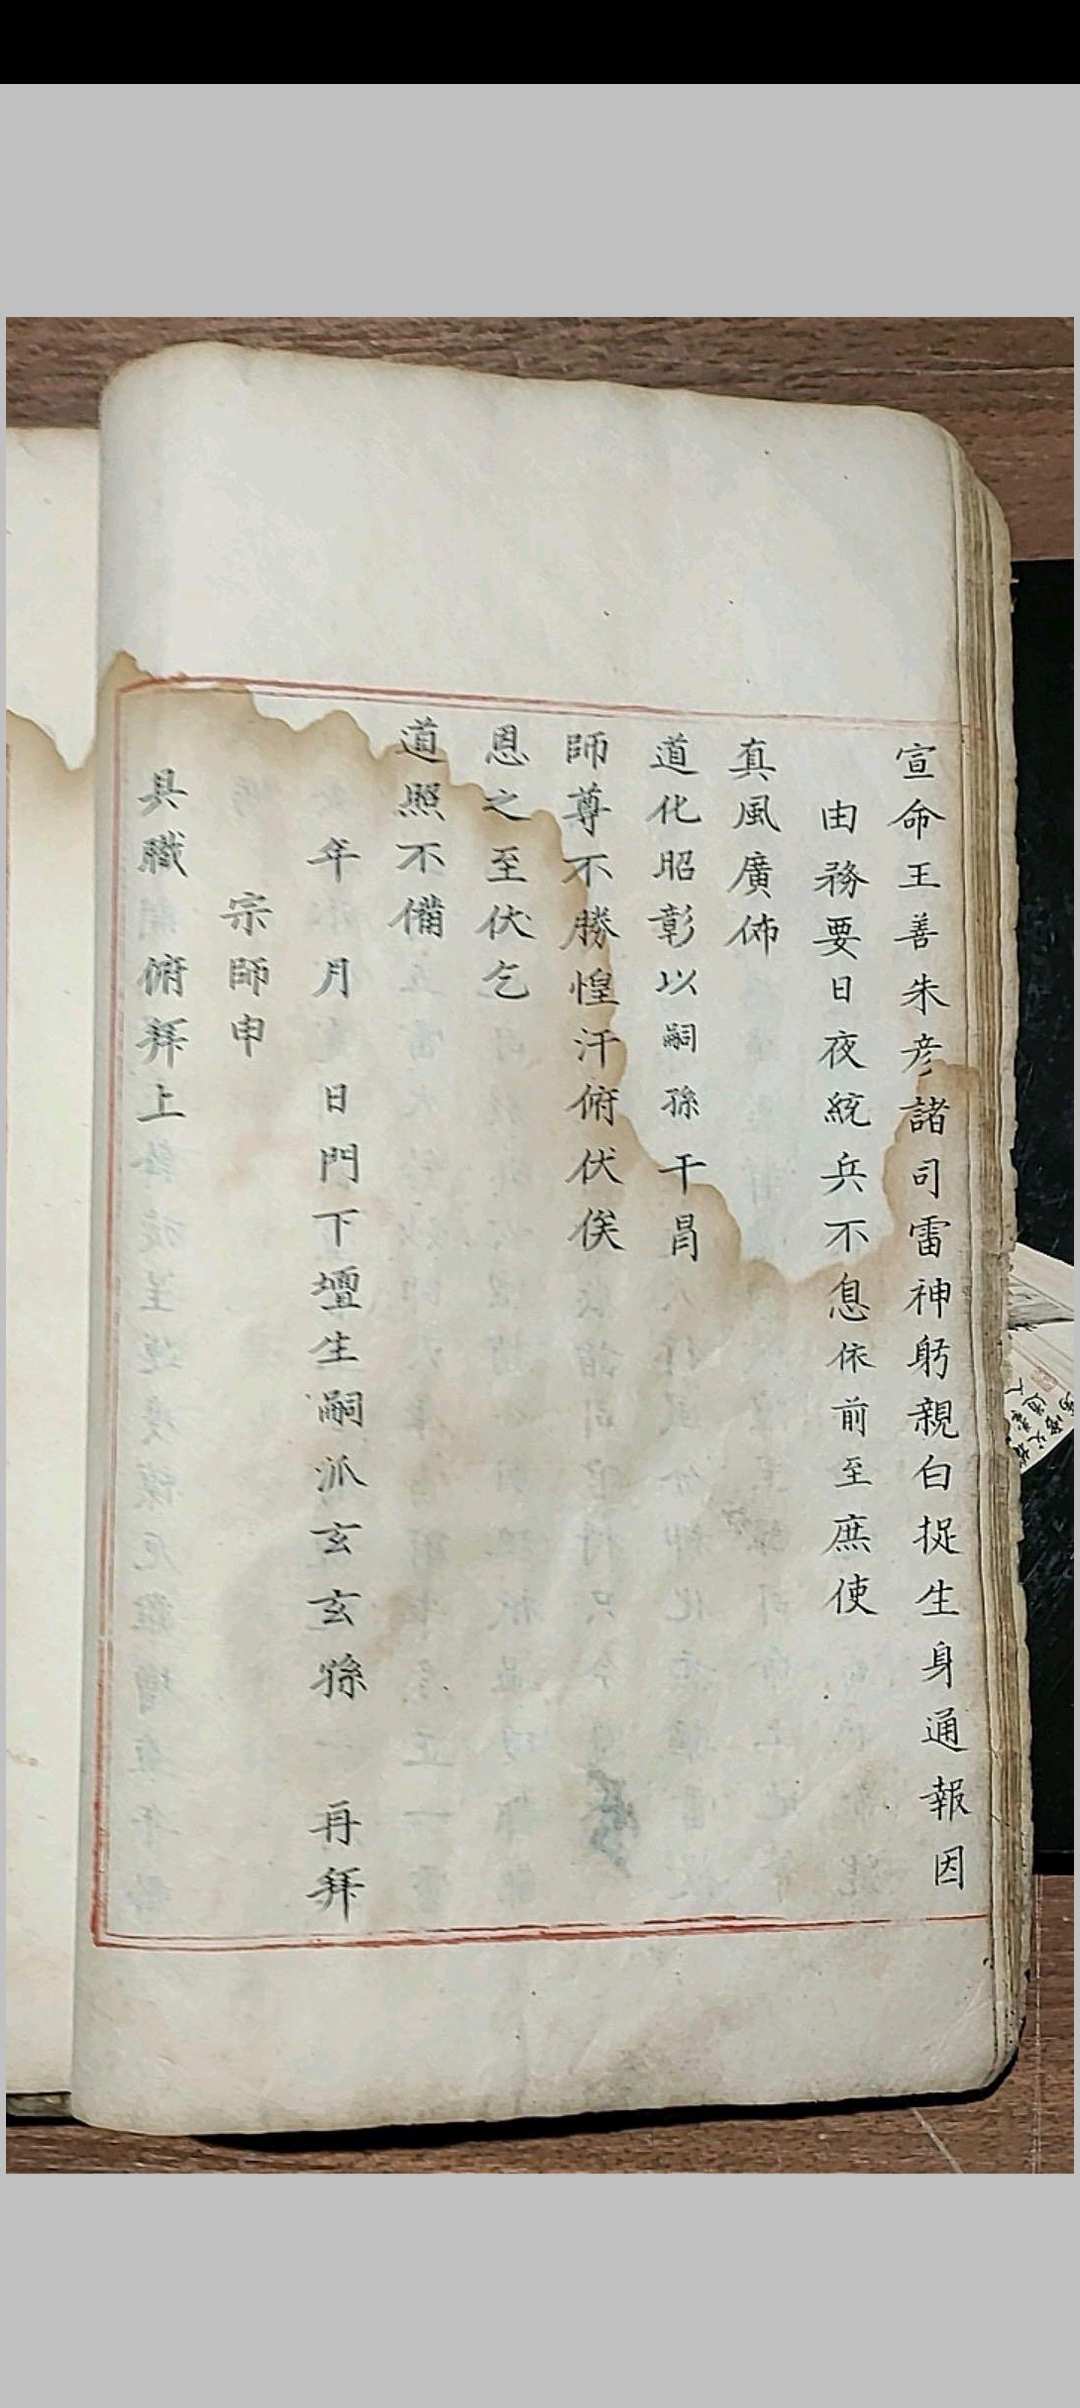 宣命王善朱彥諸司雷神躬親白捉生身通報因
由務要日夜統兵不息依前至庶使
真風廣佈
道化昭彰以嗣孫干冐
師尊不勝惶汗俯伏俟
恩之至伏乞
道照不備
年月日門下壇生嗣派玄玄孫一再拜
宗師申
具職俯拜上